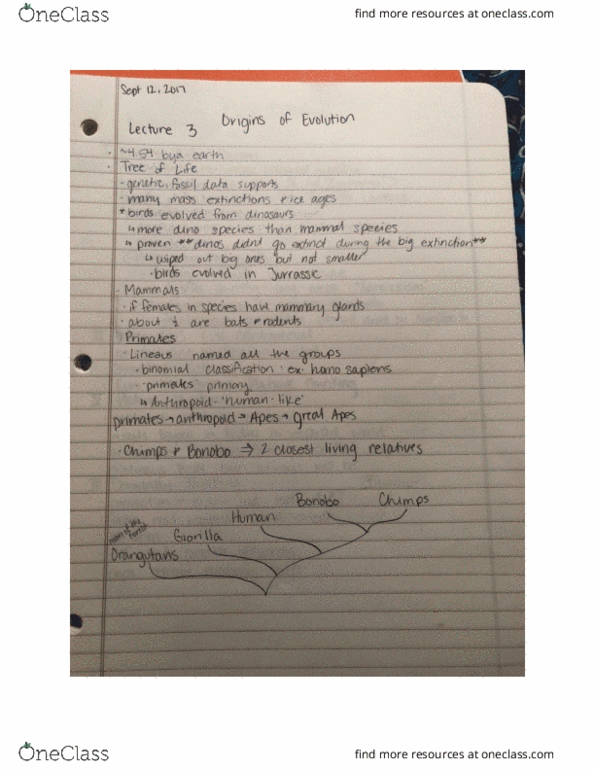 OneClass
find more resources at oneclass.com
Sept 12, 2017
Lecture 3 Origins of Evolution
· ~4.54 bya earth
· Tree of Life
- genetic, fossil data supports
- many mass extinctions + ice ages
* birds evolved from dinosaurs
↳ more dino species than mammal species
↳ proven ** dinos didnt go extinct during the big extinction**
↳ wiped out big ones but not smaller
· birds evolved in Jurrassic
- Mammals
· if females in species have mammary glands
· about ½ are bats + rodents
Primates
· Lineaus named all the groups
· binomial classification · ex· homo sapiens
· primates primary
↳ Anthropoid · 'human-like'
primates → anthropoid → Apes → great Apes
· Chimps + Bonobo ⇒ 2 closest living relatives
Bonobo Chimps
Human
man of the forest
Giorilla
Orangutans
OneClass
find more resources at oneclass.com